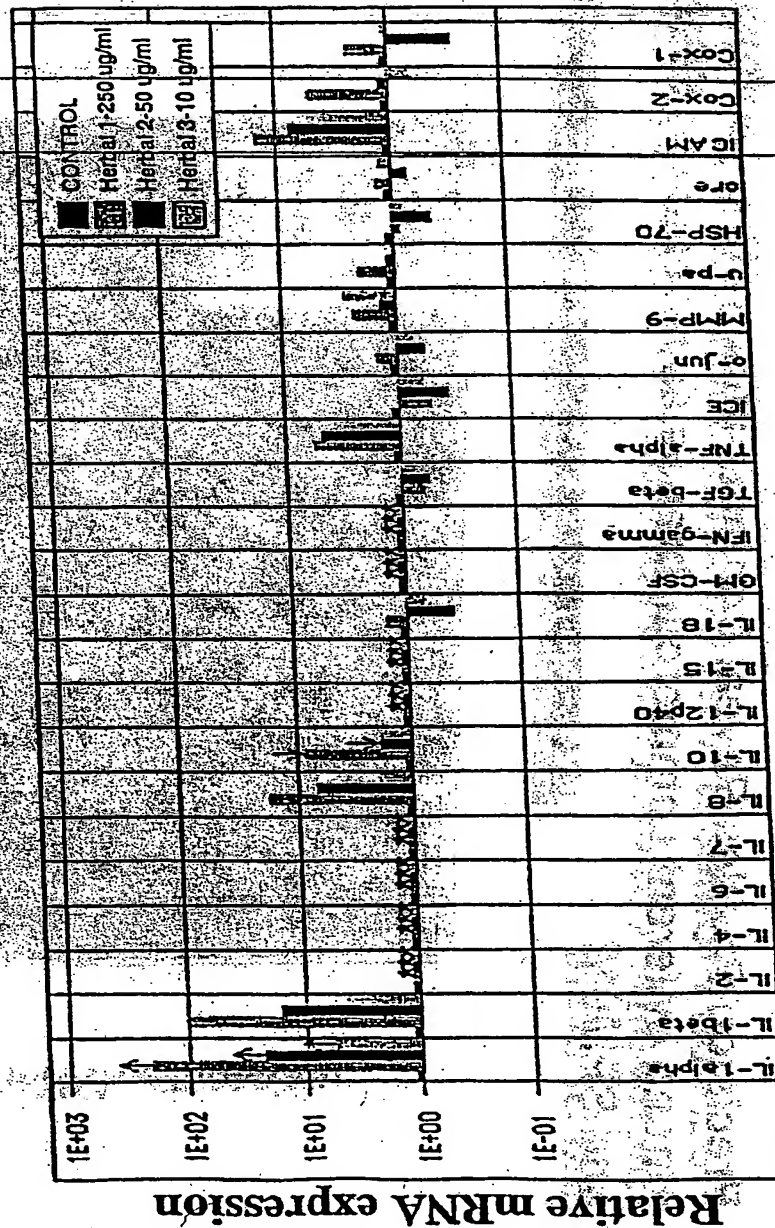 CONTROL
Herbal 1-250 ug/ml
Herbal 2-50 ug/ml
Herbal 3-10 ug/ml
1E+03
1E+02
1E+01
1E+00
1E-01
Relative mRNA expression
IL-1alpha
IL-1beta
IL-2
IL-4
IL-6
IL-7
IL-8
IL-10
IL-12p40
IL-15
IL-18
GM-CSF
IFN-gamma
TGF-beta
TNF-alpha
ICE
c-jun
MMP-9
u-pa
HSP-70
ore
ICAM
Cox-2
Cox-1